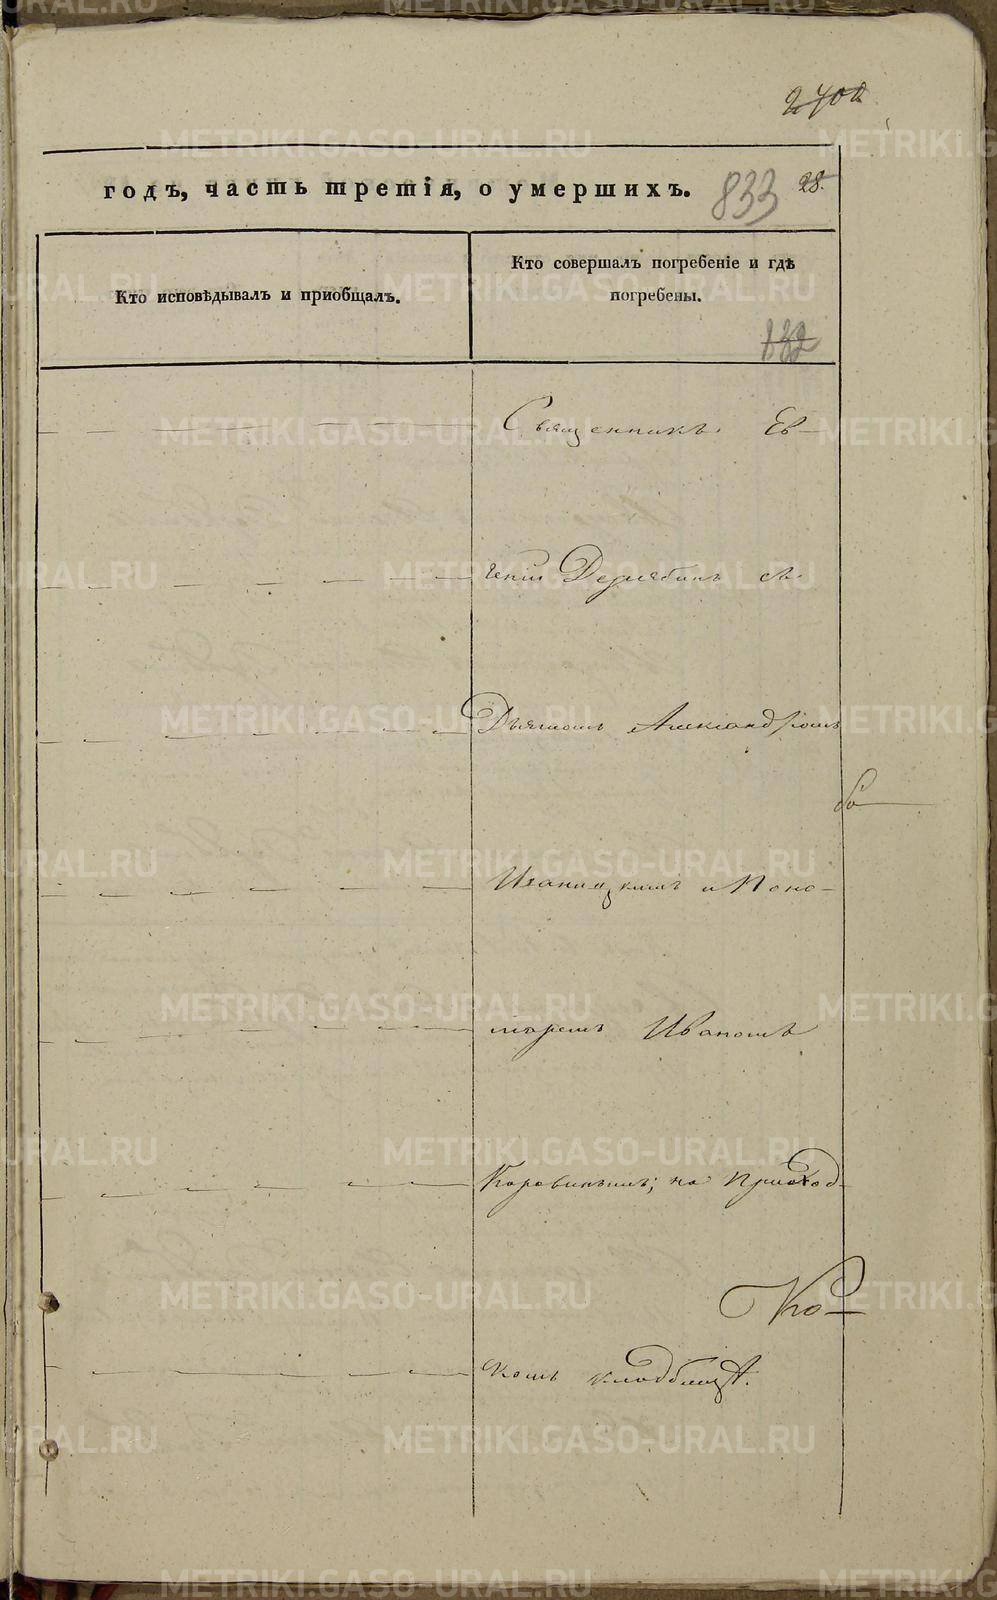 2702
годъ, часть третія, о умершихъ. 833 28.
Кто исповѣдывалъ и приобщалъ.
Кто совершалъ погребеніе и гдѣ
погребены.
832
Священникъ Ев-
геній Дерябинъ съ
Дьякономъ Александромъ
и Поно-
маремъ Иваномъ
Коровинымъ; на Приход-
скомъ кладбищѣ.
METRIKI.GASO-URAL.RU